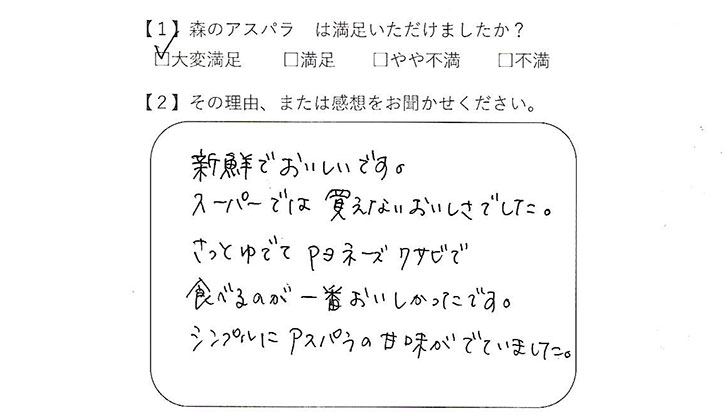 【1】森のアスパラ　は満足いただけましたか？
☑大変満足　□満足　□やや不満　□不満
【2】その理由、または感想をお聞かせください。
新鮮でおいしいです。
スーパーでは買えないおいしさでした。
さっとゆでてマヨネーズワサビで
食べるのが一番おいしかったです。
シンプルにアスパラの甘味がでていました。